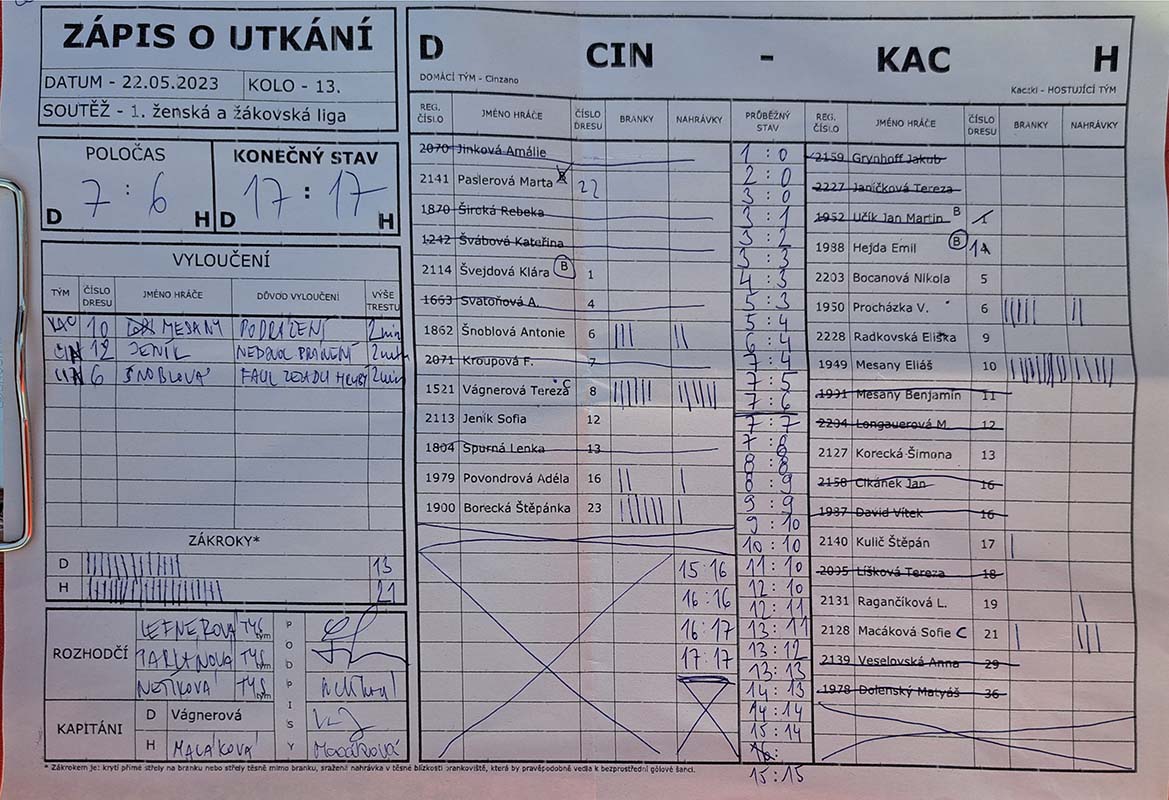 ZÁPIS O UTKÁNÍ
DATUM - 22.05.2023 KOLO - 13.
SOUTĚŽ - 1. ženská a žákovská liga
POLOČAS KONEČNÝ STAV
7 : 6 17 : 17
D H D H
VYLOUČENÍ
TÝM ČÍSLO DRESU JMÉNO HRÁČE DŮVOD VYLOUČENÍ VÝŠE TRESTU
KAC 10 MESANY PODRAŽENÍ 2min
CIN 12 JENÍK NEDOVOL BRÁNĚNÍ 2min
CIN 6 ŠNOBLOVÁ FAUL ZEZADU 2min
ZÁKROKY*
D 13
H 21
ROZHODČÍ
TYS tým
TYS tým
NETÍKOVÁ TYS tým
PODPISY
KAPITÁNI
D Vágnerová
H MACÁKOVÁ Macáková
D CIN - KAC H
DOMÁCÍ TÝM - Cinzano Kaczki - HOSTUJÍCÍ TÝM
REG. ČÍSLO JMÉNO HRÁČE ČÍSLO DRESU BRANKY NAHRÁVKY
2070 Jinková Amálie
2141 Paslerová Marta 22
1870 Široká Rebeka
1242 Švábová Kateřina
2114 Švejdová Klára B 1
1663 Svatoňová A. 4
1862 Šnoblová Antonie 6
2071 Kroupová F. 7
1521 Vágnerová Tereza C 8
2113 Jeník Sofia 12
1804 Spurná Lenka 13
1979 Povondrová Adéla 16
1900 Borecká Štěpánka 23
15:16
16:16
16:17
17:17
PRŮBĚŽNÝ STAV
1 : 0
2 : 0
3 : 0
3 : 1
3 : 2
3 : 3
4 : 3
5 : 3
5 : 4
6 : 4
7 : 4
7 : 5
7 : 6
7 : 7
7 : 8
8 : 8
8 : 9
9 : 9
9 : 10
10 : 10
11 : 10
12 : 10
12 : 11
13 : 11
13 : 12
13 : 13
14 : 13
14 : 14
15 : 14
15 : 15
REG. ČÍSLO JMÉNO HRÁČE ČÍSLO DRESU BRANKY NAHRÁVKY
2159 Grynhoff Jakub
2227 Janíčková Tereza
1952 Učík Jan Martin B 1
1988 Hejda Emil B 1
2203 Bocanová Nikola 5
1950 Procházka V. 6
2228 Radkovská Eliška 9
1949 Mesany Eliáš 10
1991 Mesany Benjamin 11
2204 Longauerová M 12
2127 Korecká Šimona 13
2158 Cikánek Jan 16
1987 David Vítek 16
2140 Kulič Štěpán 17
2095 Lišková Tereza 18
2131 Ragančíková L. 19
2128 Macáková Sofie C 21
2139 Veselovská Anna 29
1978 Dolenský Matyáš 36
* Zákrokem je: krytí přímé střely na branku nebo střely těsně mimo branku, sražení nahrávka v těsné blízkosti brankoviště, která by pravěpodobně vedla k bezprostřední gólové šanci.